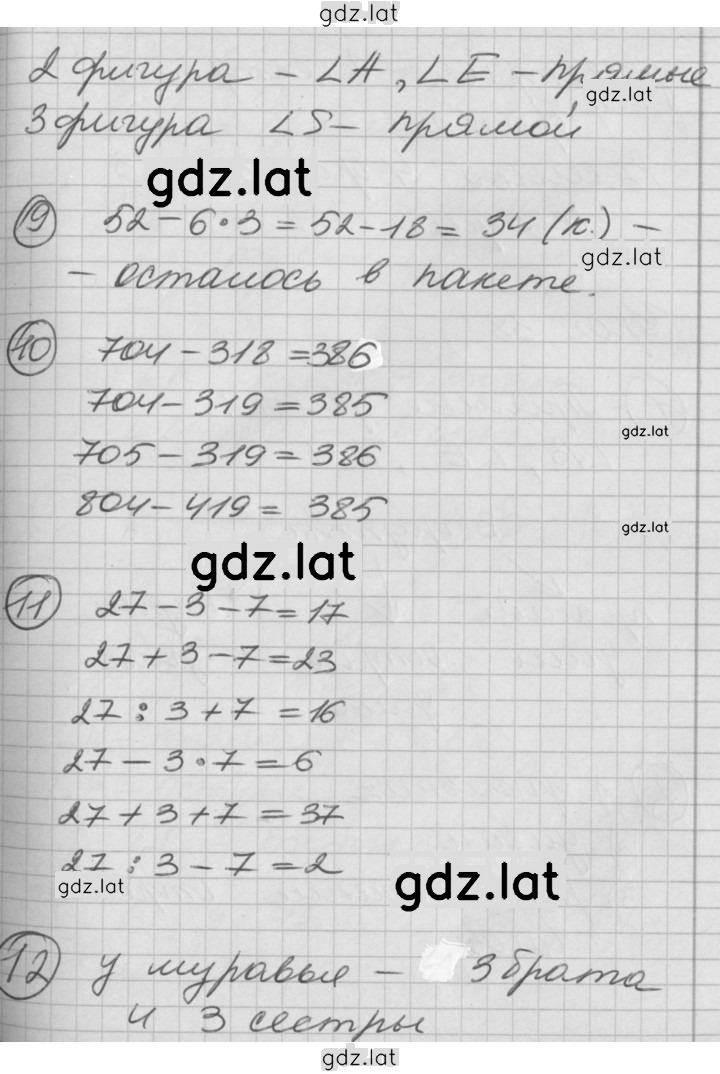 gdz.lat
2 фигура – ∠A, ∠E – прямые
gdz.lat
3 фигура ∠S – прямой
gdz.lat
9 52 – 6 · 3 = 52 – 18 = 34 (к.) –
gdz.lat
– осталось в пакете.
10 704 – 318 = 386
704 – 319 = 385
gdz.lat
705 – 319 = 386
804 – 419 = 385
gdz.lat
gdz.lat
11 27 – 3 – 7 = 17
27 + 3 – 7 = 23
27 : 3 + 7 = 16
27 – 3 · 7 = 6
27 + 3 + 7 = 37
27 : 3 – 7 = 2
gdz.lat
gdz.lat
12 у муравья – 3 брата
и 3 сестры
gdz.lat